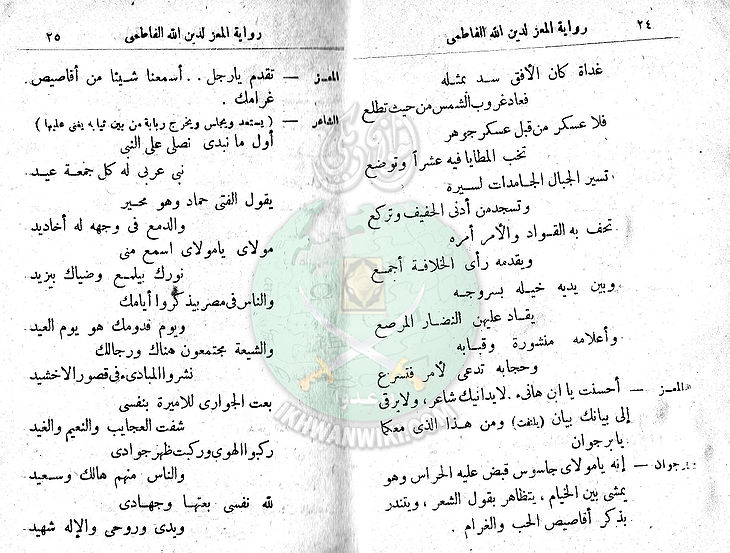 ٢٤ رواية المعز لدين الله الفاطمى
غداة كان الأفق سد بمثله
فعاد غروب الشمس من حيث تطلع
فلا عسكر من قبل عسكر جوهر
تخب المطايا فيه عشراً وتوضع
تسير الجبال الجامدات لسيره
وتسجد من أدنى الحفيف وتركع
تحف به القواد والأمر أمره
ويقدمه رأى الخلافة أجمع
وبين يديه خيله بسروجه
يقاد عليهن النضار المرصع
وأعلامه منشورة وقبابه
وحجابه تدعى لأمر فتسرع
المعز — أحسنت يا ابن هانىء . لايدانيك شاعر ، ولا يرقى
إلى بيانك بيان (يلتفت) ومن هذا الذى معكما
يابرجوان
برجوان — إنه يامولاى جاسوس قبض عليه الحراس وهو
يمشى بين الخيام ، يتظاهر بقول الشعر ، ويتندر
بذكر أقاصيص الحب والغرام .
رواية المعز لدين الله الفاطمى ٢٥
المعز — تقدم يارجل . . أسمعنا شيئا من أقاصيص
غرامك .
الشاعر — ( يستعد ويجلس ويخرج ربابة من بين ثيابه يغنى عليها )
أول ما نبدى نصلى على النبى
نبى عربى له كل جمعة عيد
يقول الفتى حماد وهو محير
والدمع فى وجهه له أخاديد
مولاى يامولاى اسمع منى
نورك بيلمع وضياك بيزيد
والناس فى مصر بيذكروا أيامك
ويوم قدومك هو يوم العيد
والشيعة مجتمعون هناك ورجالك
نشروا المبادىء فى قصور الاخشيد
بعت الجوارى للاميرة بنفسى
شفت العجايب والنعيم والغيد
ركبوا الهوى وركبت ظهر جوادى
والناس منهم هالك وسعيد
لله نفسى بعتها وجهادى
ويدى وروحى والإله شهيد
IKHWANWIKI.COM